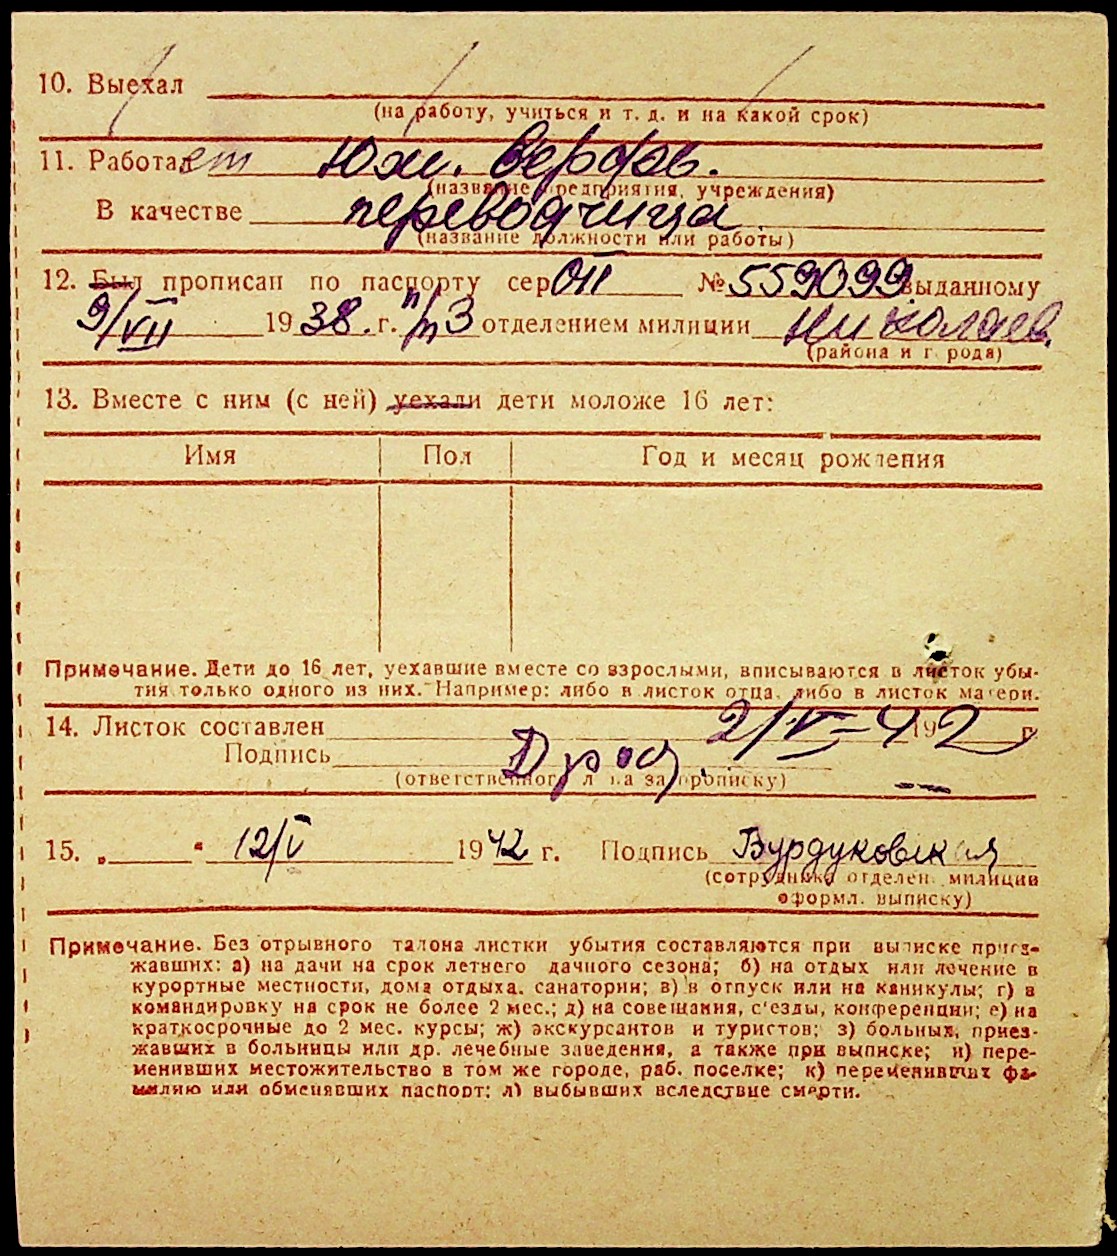 10. Выехал
(на работу, учиться и т. д. и на какой срок)
11. Работает Юж. Верфов.
(название предприятия, учреждения)
В качестве переводчица.
(название должности или работы)
12. Был прописан по паспорту сер ОП № 559099 выданному
9/VII 1938. г. п/т 3 отделением милиции Николаев.
(района и города)
13. Вместе с ним (с ней) уехали дети моложе 16 лет:
Имя Пол Год и месяц рождения
Примечание. Дети до 16 лет, уехавшие вместе со взрослыми, вписываются в листок убы-
тия только одного из них. Например: либо в листок отца, либо в листок матери.
14. Листок составлен 2/V-42 19 г.
Подпись
(ответственного лица за прописку)
15. „ " 12/V 1942 г. Подпись Вурдуковская
(сотрудника отделен. милиции
оформл. выписку)
Примечание. Без отрывного талона листки убытия составляются при выписке приез-
жавших: а) на дачи на срок летнего дачного сезона; б) на отдых или лечение в
курортные местности, дома отдыха, санатории; в) в отпуск или на каникулы; г) в
командировку на срок не более 2 мес.; д) на совещания, с'езды, конференции; е) на
краткосрочные до 2 мес. курсы; ж) экскурсантов и туристов; з) больных, приез-
жавших в больницы или др. лечебные заведения, а также при выписке; и) пере-
менивших местожительство в том же городе, раб. поселке; к) переменивших фа-
милию или обменявших паспорт; л) выбывших вследствие смерти.